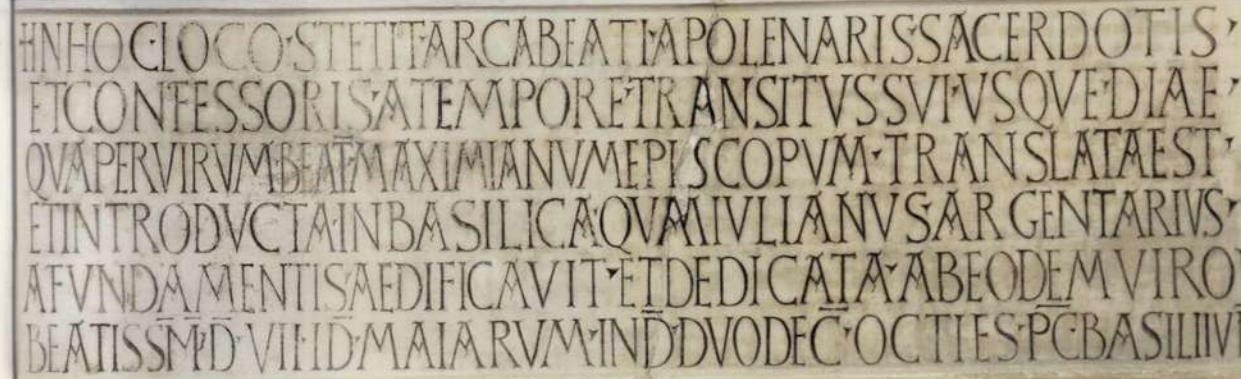 ‡INHOC·LOCO·STETIT·ARCABEATI·APOLENARIS·SACERDOTIS·
ETCONFESSORIS·ATEMPORE·TRANSITVSSVI·VSQVE·DIAE·
QVAPERVIRVM·BEAT̄·MAXIMIANVMEPISCOPVM·TRANSLATAEST·
ETINTRODVCTA·INBASILICA·QVAMIVLIANVS·ARGENTARIVS·
AFVNDAMENTIS·AEDIFICAVIT·ETDEDICATA·ABEODEMVIRO
BEATISSM̄·D̄·VII·ID̄·MAIARVM·IND̄·DVODEC̄·OCTIES·PC̄·BASILIIV